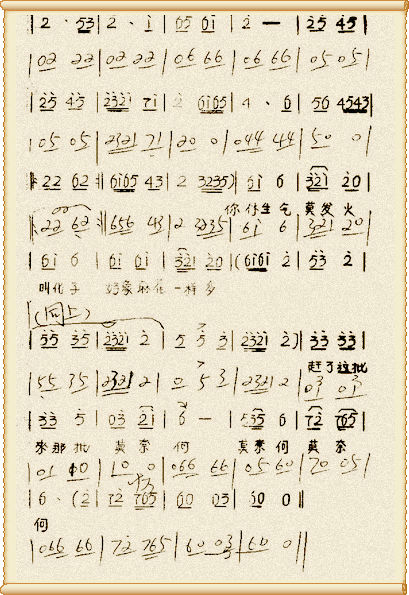 | 2 · 53 | 2 · i | 65 61 | 2 — | 25 45 |
| 02 22 | 02 22 | 06 66 | 06 66 | 05 05 |
| 25 45 | 2321 71 | 2 6165 | 4 · 6 | 56 4543 |
| 05 05 | 2321 71 | 20 0 | 044 44 | 50 0 |
22 62 | 6165 43 | 2 3235) | 61 6 | 321 20 |
你 什生 气 莫发 火
22 62 | 656 43 | 2 3235 | 61 6 | 321 20 |
| 61 6 | 61 61 | 321 20 | (6161 2 | 53 2 |
叫化 子 好象 一样 多
(同上)
| 55 35 | 2321 2 | 5 5 3 | 2321 2) | 33 33 |
赶了这批
| 55 35 | 2321 2 | 0 5 3 | 2321 2 | 03 03 |
| 33 5 | 03 21 | 6 — | 535 6 | 72 765 |
来那 批 莫 奈 何 莫奈 何 莫 奈
| 01 10 | 10 0 | 066 66 | 05 60 | 70 05 |
6 · (2 | 72 765 | 60 03 | 60 0 ‖
何
| 066 66 | 72 765 | 60 03 | 60 0 ‖